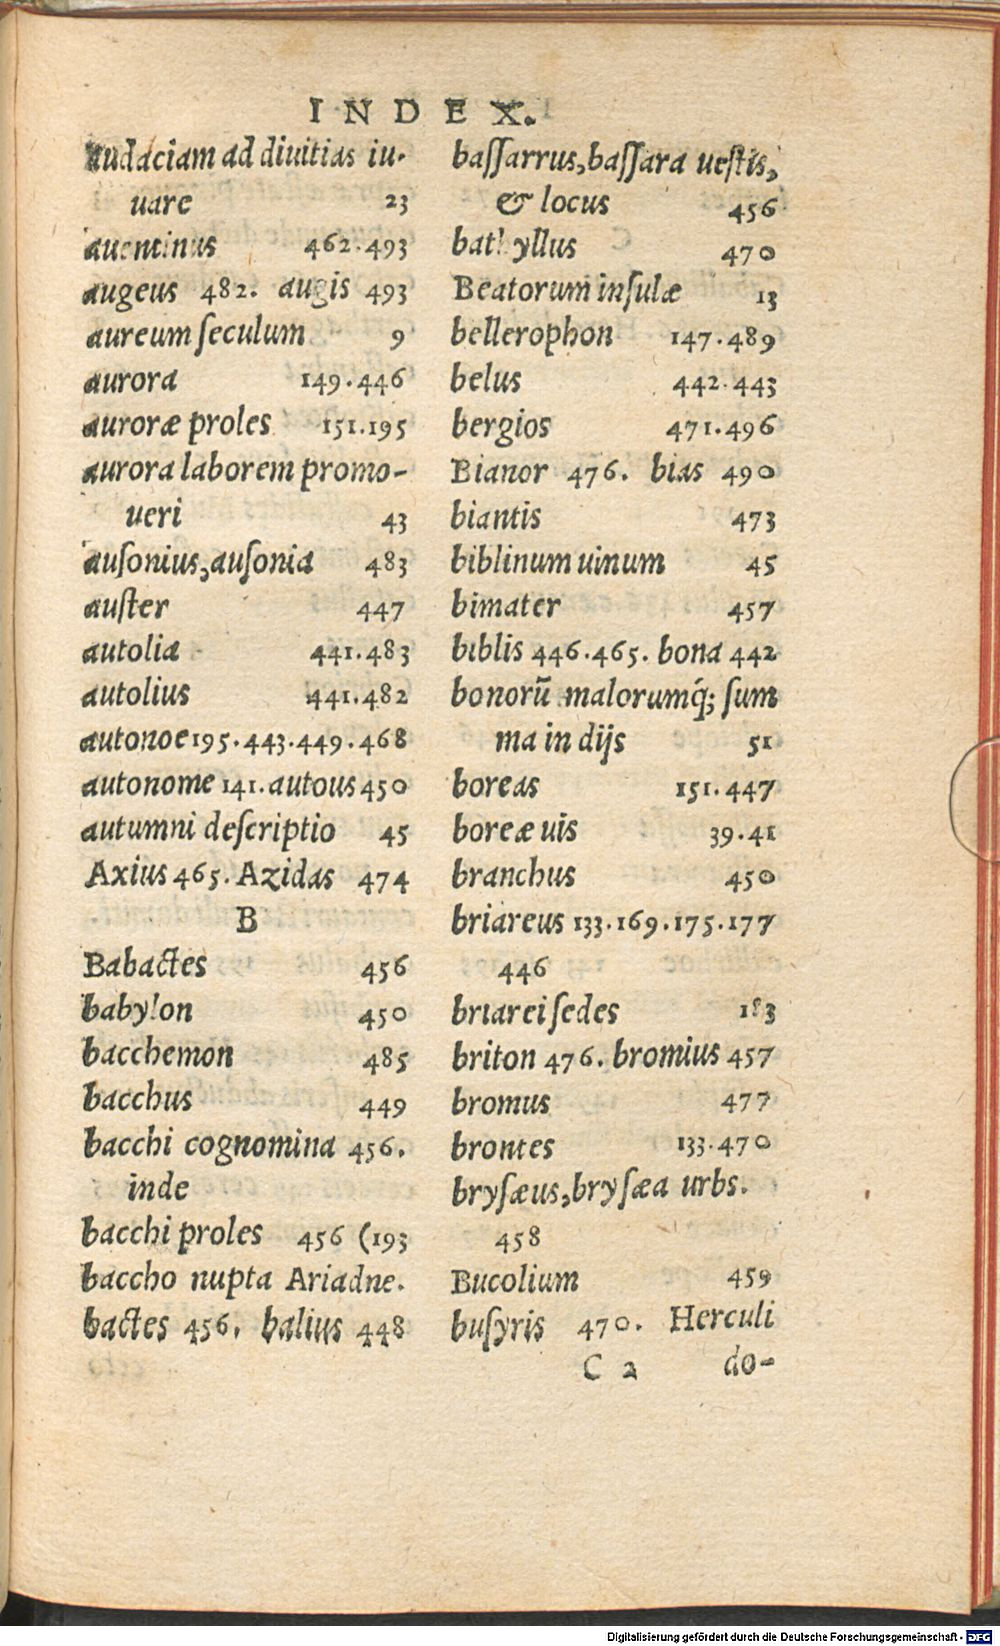 INDEX.
audaciam ad diuitias iu-
uare 23
auentinus 462.493
augeus 482. augis 493
aureum ſeculum 9
aurora 149.446
auroræ proles 151.195
aurora laborem promo-
ueri 43
auſonius, auſonia 483
auſter 447
autolia 441.483
autolius 441.482
autonoe 195.443.449.468
autonome 141. autous 450
autumni deſcriptio 45
Axius 465. Azidas 474
B
Babactes 456
babylon 450
bacchemon 485
bacchus 449
bacchi cognomina 456.
inde
bacchi proles 456 (193
baccho nupta Ariadne.
bactes 456. balius 448
baſſarrus, baſſara ueſtis,
& locus 456
bathyllus 470
Beatorum inſulæ 13
bellerophon 147.489
belus 442.443
bergios 471.496
Bianor 476. bias 490
biantis 473
biblinum uinum 45
bimater 457
biblis 446.465. bona 442
bonorũ malorumq́; ſum
ma in dijs 51
boreas 151.447
boreæ uis 39.41
branchus 450
briareus 133.169.175.177
446
briarei ſedes 183
briton 476. bromius 457
bromus 477
brontes 133.470
bryſæus, bryſæa urbs.
458
Bucolium 459
buſyris 470. Herculi
C 2 do-
Digitalisierung gefördert durch die Deutsche Forschungsgemeinschaft - DFG